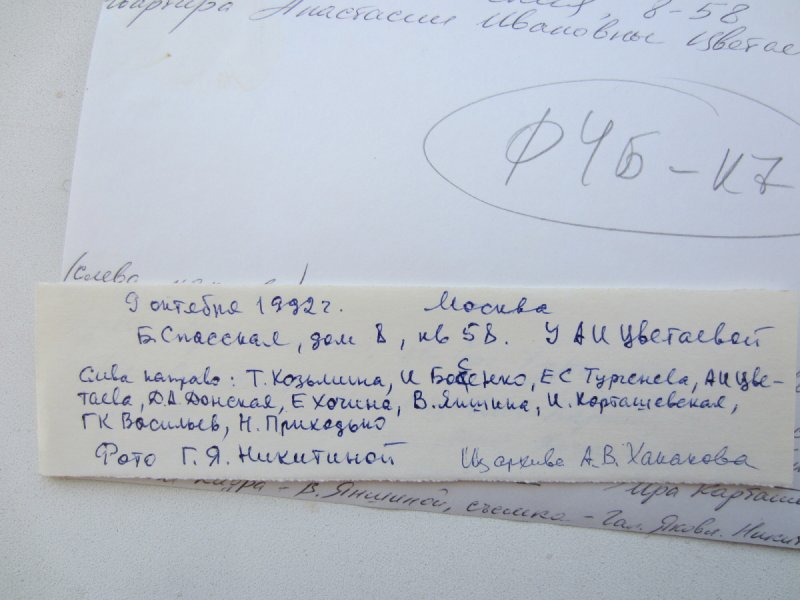 8-58
квартира Анастасии Ивановны Цветае
ФЧБ-К7
/слева
9 октября 1992 г. Москва
Б. Спасская, дом 8, кв 58. У А И Цветаевой
Слева направо: Т. Козьмина, И Бо енко, ЕС Тургенева, АИ Цве-
таева, Д.А Донская, Е Хочина, В. Яншина, И. Карташевская,
ГК Васильев, Н. Приходько
Фото Г. Я. Никитиной Из архива А. В. Ханакова
Ира Карташ
кадра - В. Яншиной, съемка - Гал. Яковл. Никит